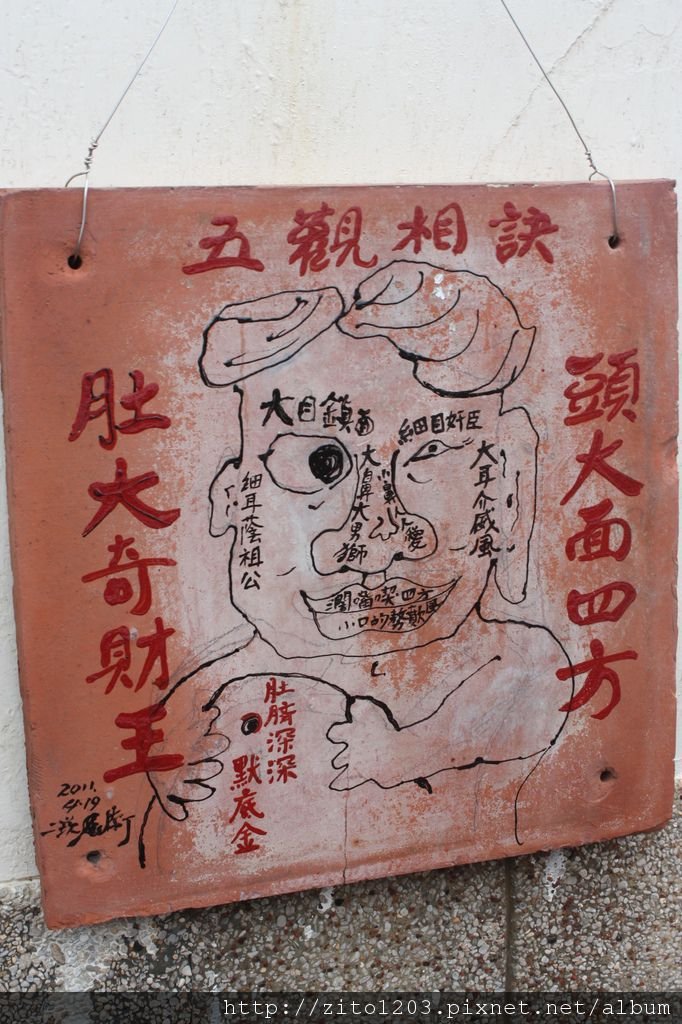 五觀相訣
頭大面四方
肚大奇財王
大目鎮
細目奸臣
大鼻大男獅
大耳介威風
細耳蔭祖公
濶嘴喫四方
小口的勢歕風
肚臍深深
默底金
2011.
4.19
http://zito1203.pixnet.net/album